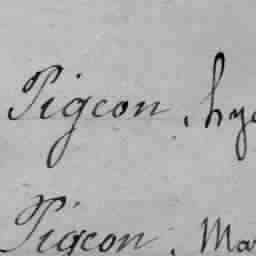 Pigeon, hya
Pigeon, Mar